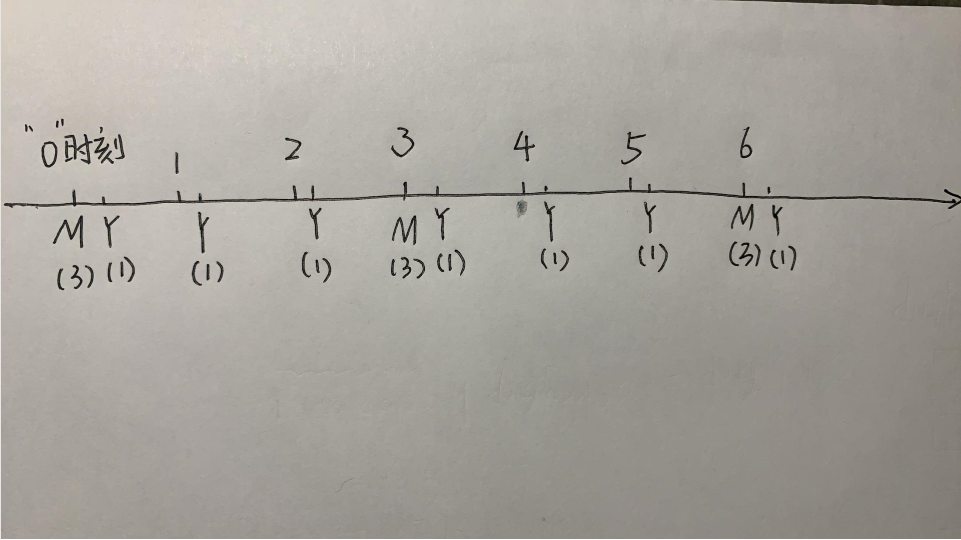 "0"时刻 1 2 3 4 5 6
M Y Y Y M Y Y Y M Y
(3) (1) (1) (1) (3) (1) (1) (1) (3) (1)